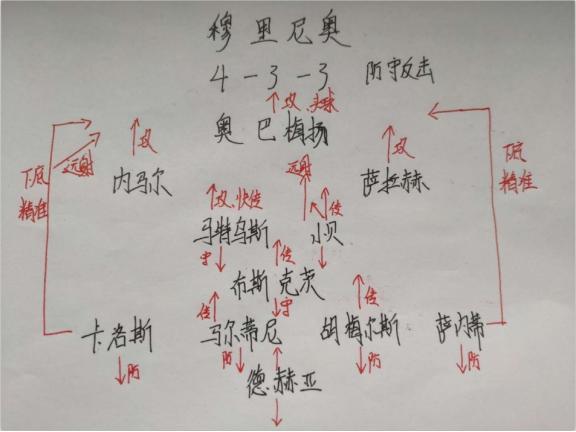 穆里尼奥
4-3-3 防守反击
攻 头球
奥巴梅扬
攻 攻
下底 精准 远射 远射 下底 精准
内马尔 萨拉赫
攻、快传 传
马特乌斯 小贝
守 传
布斯克茨
传 守 传
卡洛斯 马尔蒂尼 胡梅尔斯 萨内蒂
防 防 防 防
德赫亚